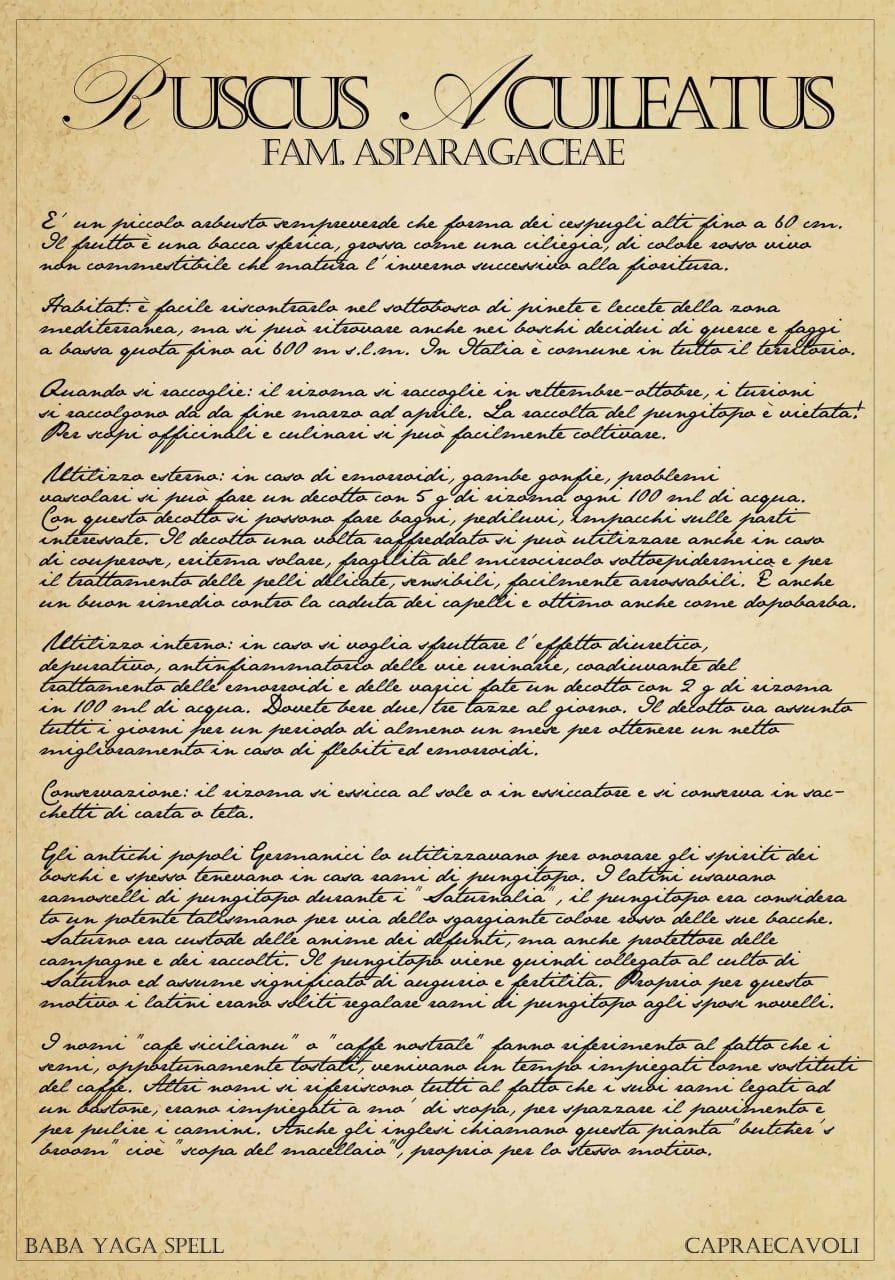 Ruscus Aculeatus
Fam. Asparagaceae
E' un piccolo arbusto sempreverde che forma dei cespugli alti fino a 60 cm.
Il frutto è una bacca sferica, grossa come una ciliegia, di colore rosso vivo
non commestibile che matura l'inverno successivo alla fioritura.
Habitat: è facile riscontrarlo nel sottobosco di pinete e leccete della zona
mediterranea, ma si può ritrovare anche nei boschi decidui di querce e faggi
a bassa quota fino ai 600 m s.l.m. In Italia è comune in tutto il territorio.
Quando si raccoglie: il rizoma si raccoglie in settembre-ottobre, i turioni
si raccolgono da da fine marzo ad aprile. La raccolta del pungitopo è vietata!
Per scopi officinali e culinari si può facilmente coltivare.
Utilizzo esterno: in caso di emorroidi, gambe gonfie, problemi
vascolari si può fare un decotto con 5 g di rizoma ogni 100 ml di acqua.
Con questo decotto si possono fare bagni, pediluvi, impacchi sulle parti
interessate. Il decotto una volta raffreddato si può utilizzare anche in caso
di couperose, eritema solare, fragilità del microcircolo sottoepidermico e per
il trattamento delle pelli delicate, sensibili, facilmente arrossabili. È anche
un buon rimedio contro la caduta dei capelli e ottimo anche come dopobarba.
Utilizzo interno: in caso si voglia sfruttare l'effetto diuretico,
depurativo, antinfiammatorio delle vie urinarie, coadiuvante del
trattamento delle emorroidi e delle varici fate un decotto con 2 g di rizoma
in 100 ml di acqua. Dovete bere due/tre tazze al giorno. Il decotto va assunto
tutti i giorni per un periodo di almeno un mese per ottenere un netto
miglioramento in caso di flebiti ed emorroidi.
Conservazione: il rizoma si essicca al sole o in essiccatore e si conserva in sac-
chetti di carta o tela.
Gli antichi popoli Germanici lo utilizzavano per onorare gli spiriti dei
boschi e spesso tenevano in casa rami di pungitopo. I latini usavano
ramoscelli di pungitopo durante i "Saturnalia", il pungitopo era considera
to un potente talismano per via dello sgargiante colore rosso delle sue bacche.
Saturno era custode delle anime dei defunti, ma anche protettore delle
campagne e dei raccolti. Il pungitopo viene quindi collegato al culto di
Saturno ed assume significato di augurio e fertilità. Proprio per questo
motivo i latini erano soliti regalare rami di pungitopo agli sposi novelli.
I nomi "cafe sicilianu" o "caffe nostrale" fanno riferimento al fatto che i
semi, opportunamente tostati, venivano un tempo impiegati come sostituti
del caffe. Altri nomi si riferiscono tutti al fatto che i suoi rami legati ad
un bastone, erano impiegati a mo' di scopa, per spazzare il pavimento e
per pulire i camini. Anche gli inglesi chiamano questa pianta "butcher's
broom" cioè "scopa del macellaio", proprio per lo stesso motivo.
Baba Yaga Spell
Capraecavoli